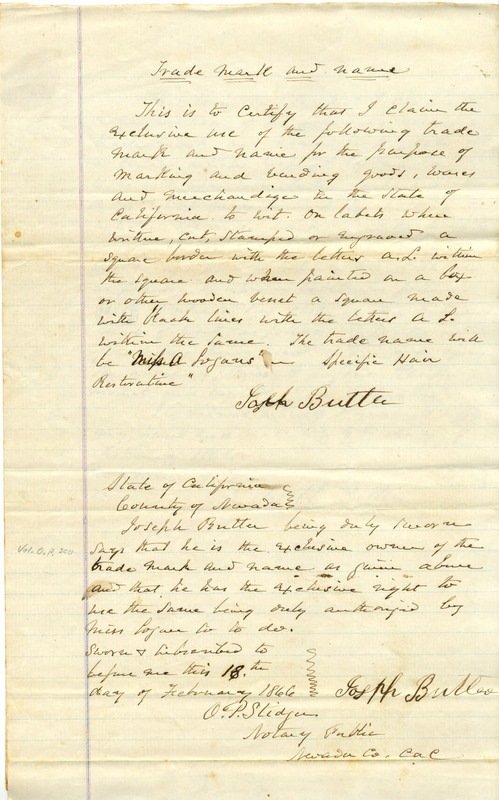 Trade Mark and Name
This is to Certify that I claim the
exclusive use of the following trade
mark and name for the purpose of
marking and branding goods, wares
and merchandize in the State of
California to wit. On labels when
written, cut, stamped or engraved a
square border with the letters A.L. within
the square and when painted on a box
or other wooden vessel a square made
with black lines with the letters A L.
within the same. The trade name will
be "Miss A Logans" Specific Hair
Restorative"
Joseph Butler
State of California
County of Nevada
Joseph Butler being duly sworn
says that he is the exclusive owner of the
trade mark and name as given above
and that he has the exclusive right to
use the same being duly authorized by
Miss Logan so to do.
Sworn & subscribed to
before me this 18th
day of February 1866
Joseph Butler
O. P. Stidger
Notary Public
Nevada Co. Cal
Vol. D, P. 250